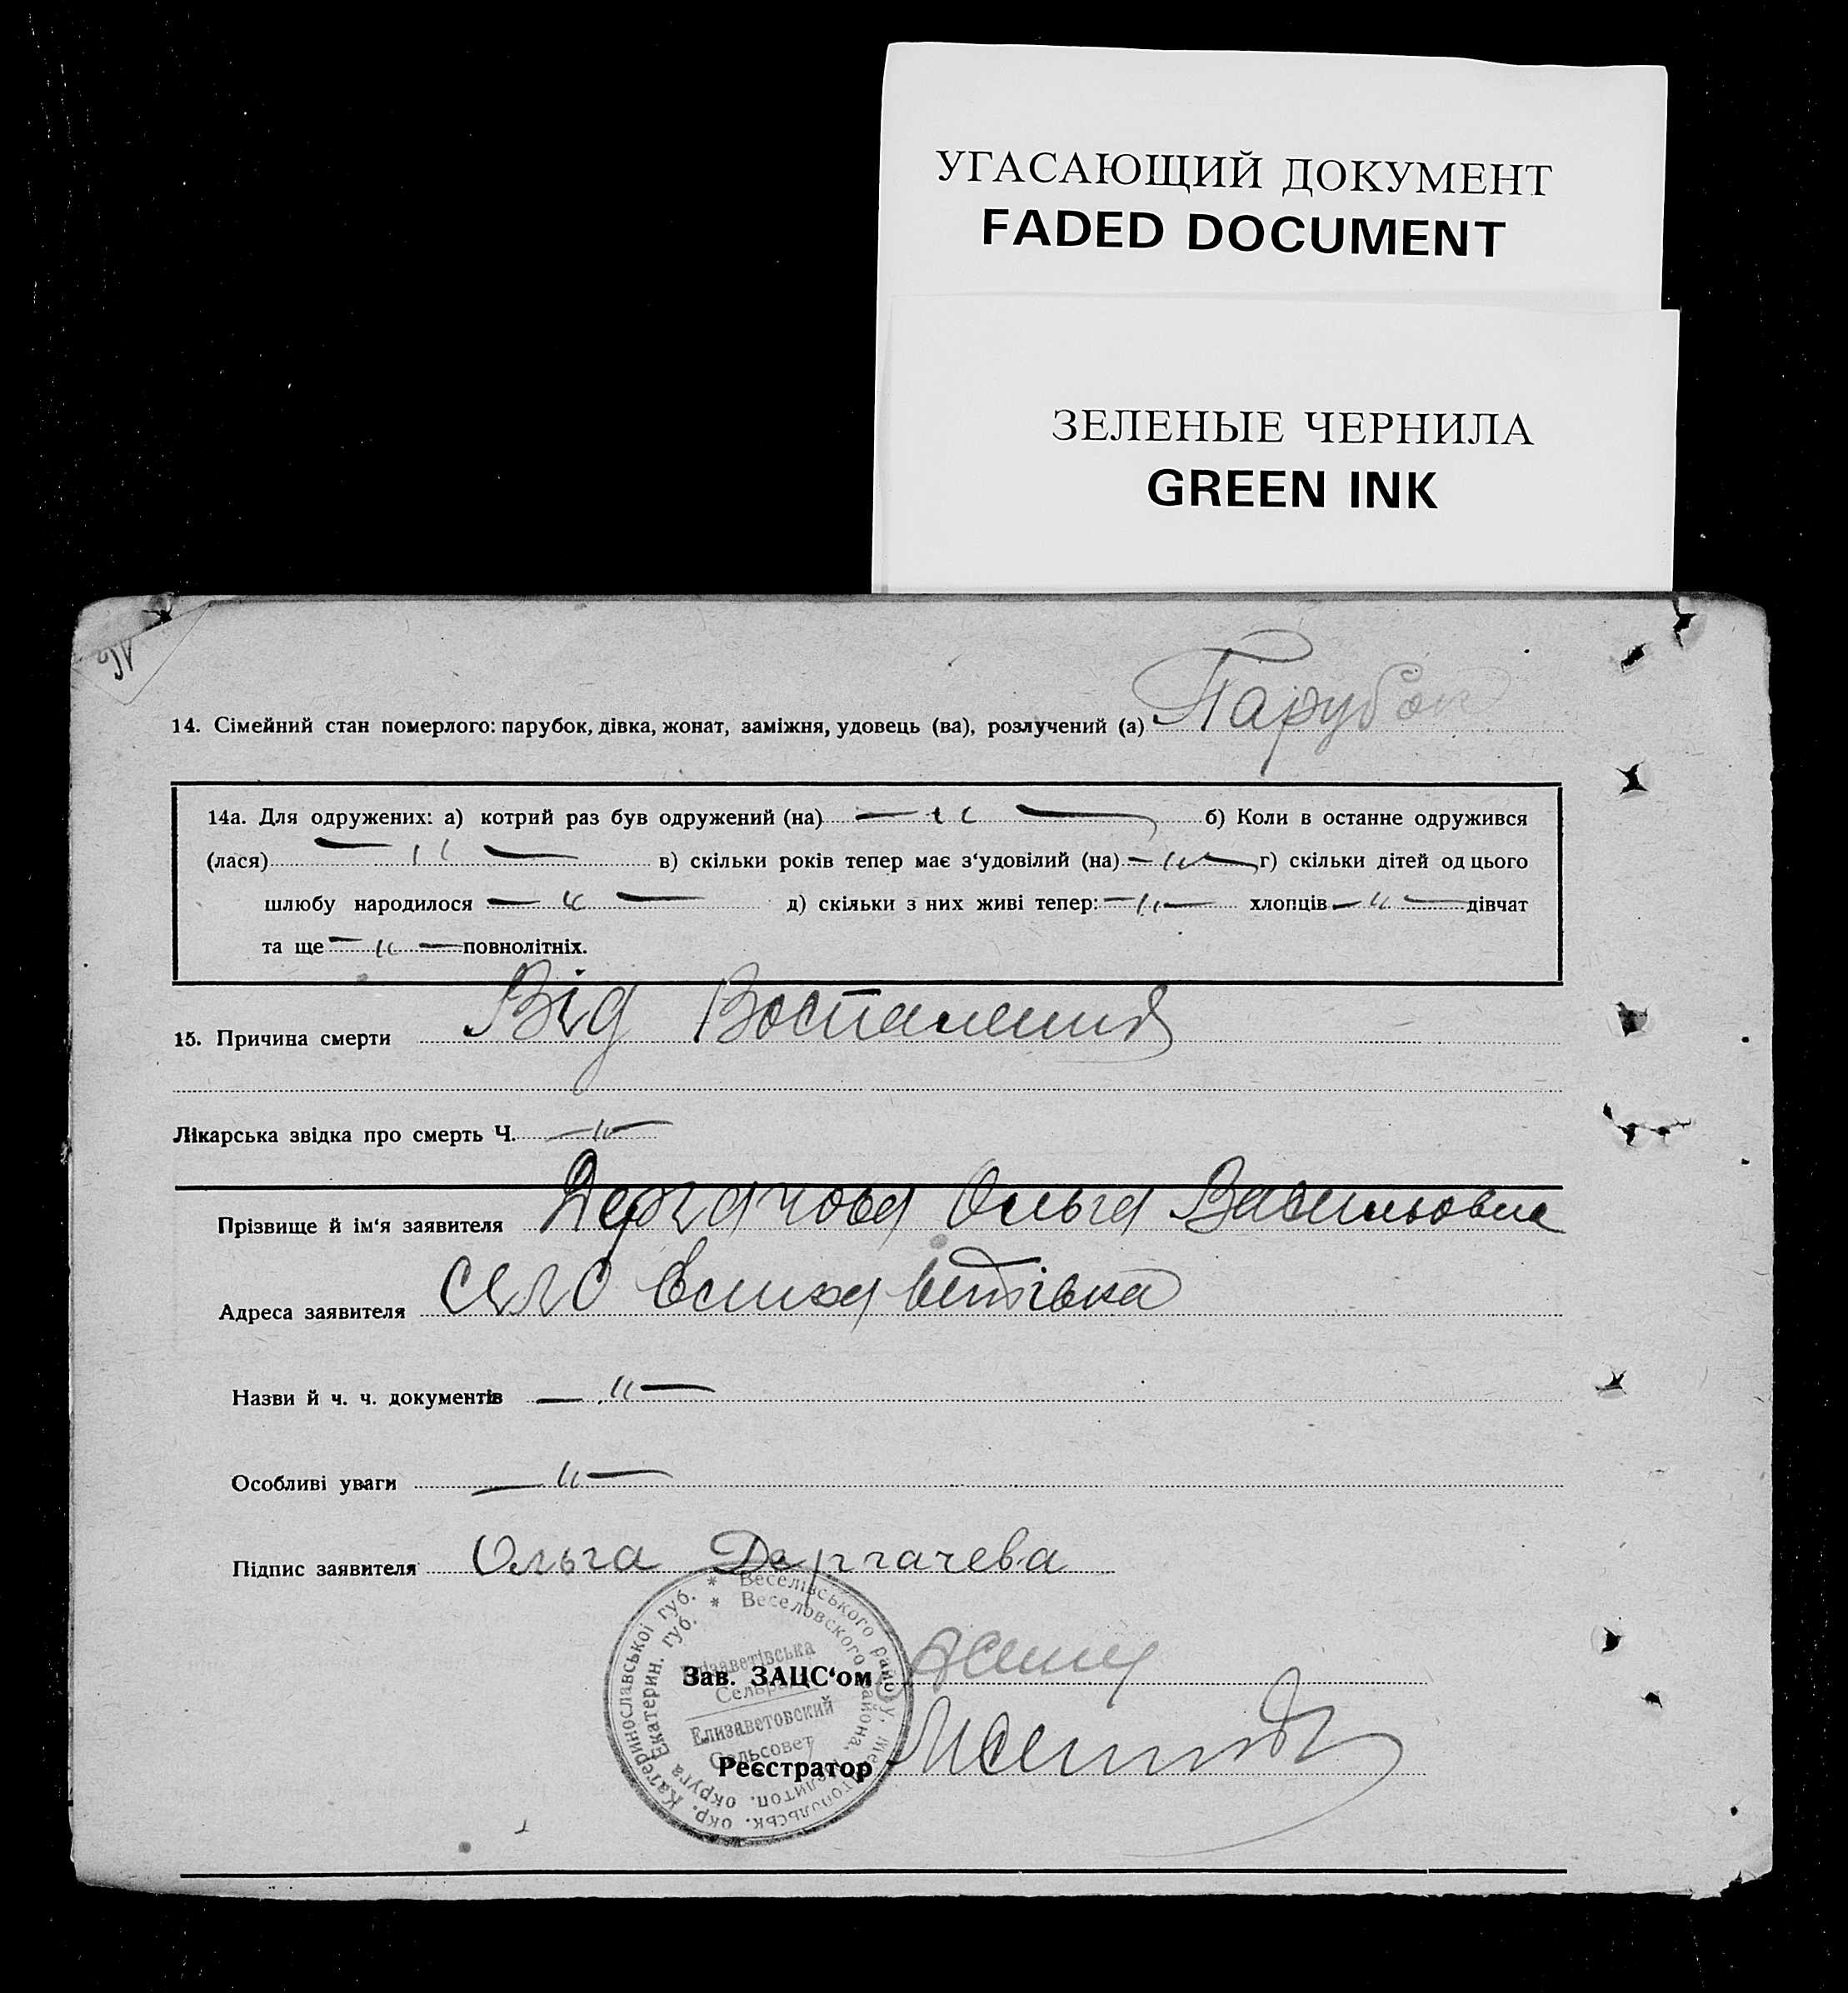 УГАСАЮЩИЙ ДОКУМЕНТ
FADED DOCUMENT
ЗЕЛЕНЫЕ ЧЕРНИЛА
GREEN INK
14. Сімейний стан померлого: парубок, дівка, жонат, заміжня, удовець (ва), розлучений (а) Парубок
14а. Для одружених: а) котрий раз був одружений (на) — " — б) Коли в останне одружився
(лася) — " — в) скільки років тепер має з‘удовілий (на) — " — г) скільки дітей од цього
шлюбу народилося — " — д) скільки з них живі тепер: — " — хлопців — " — дівчат
та ще — " — повнолітніх.
15. Причина смерти Від Воспаления
Лікарська звідка про смерть Ч. — " —
Прізвище й ім‘я заявителя Дергачова Ольга Васильовна
Адреса заявителя село Елизаветівка
Назви й ч. ч. документів — " —
Особливі уваги — " —
Підпис заявителя Ольга Дергачева
* Веселівського району, Мелітопольськ. окр. Катеринославської губ.
* Веселовского района, Мелитоп. округа Екатерин. губ.
Єлізаветівська
Сельрада
Елизаветовский
Сельсовет
Зав. ЗАЦС‘ом
Реєстратор